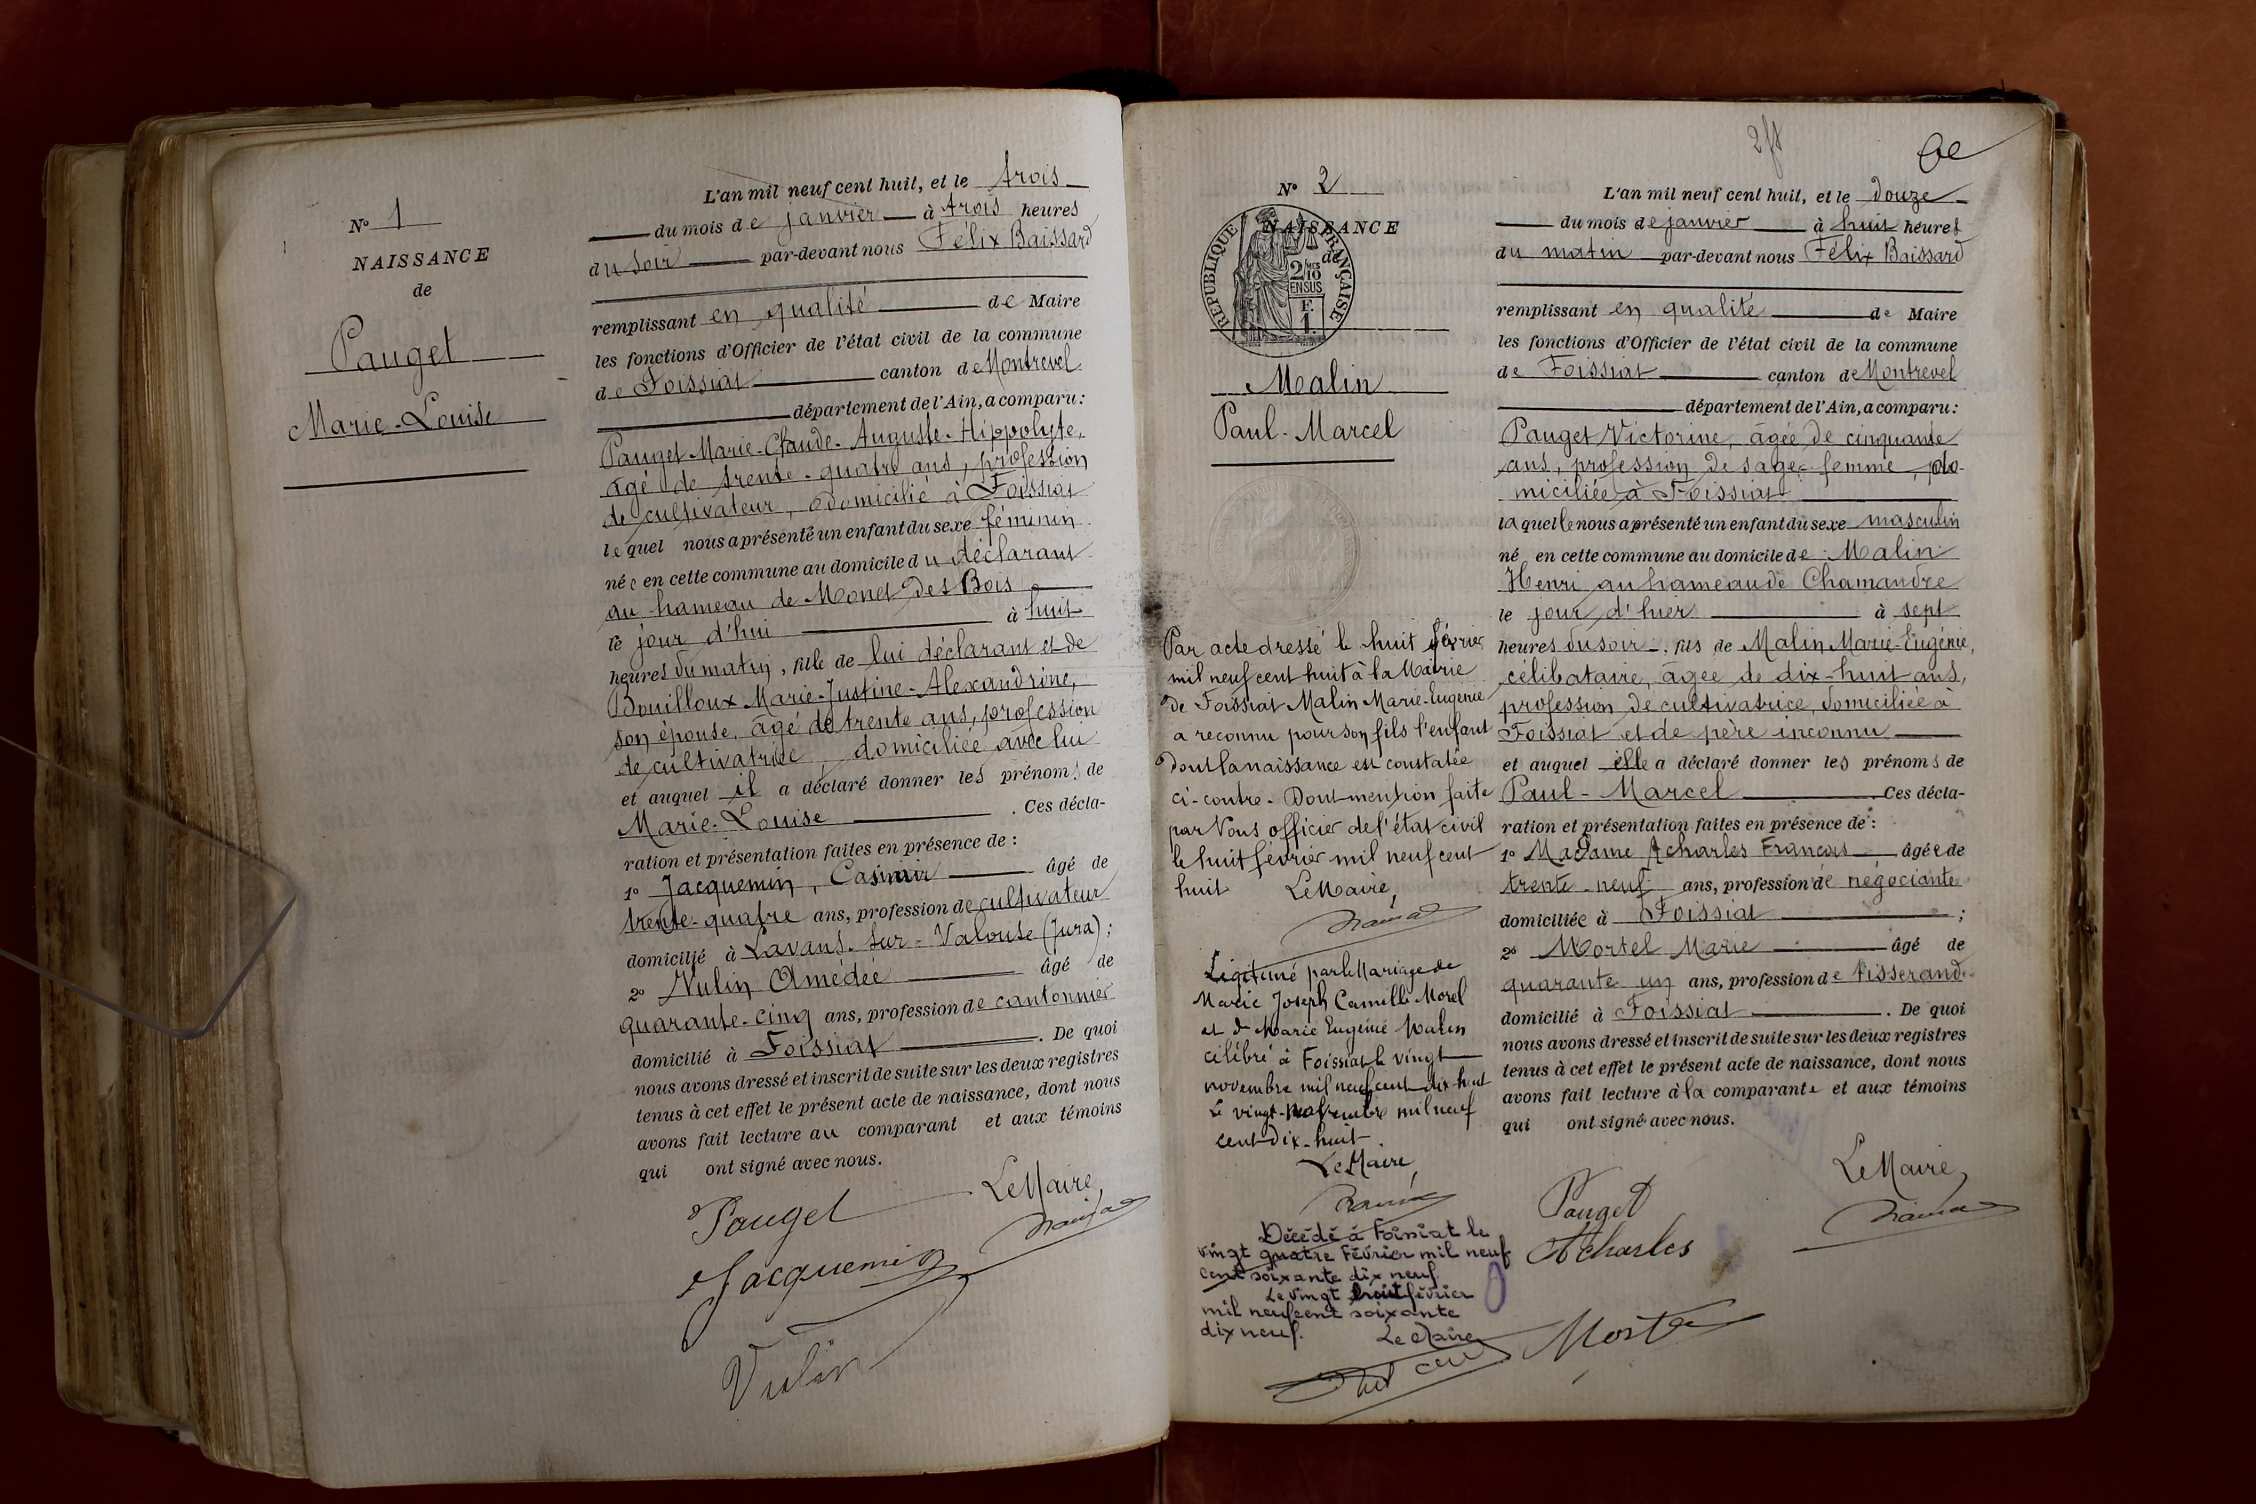 N° 1
NAISSANCE
de
Pauget
Marie-Louise
L'an mil neuf cent huit, et le trois
du mois de janvier à trois heures
du soir par-devant nous Félix Baissard
remplissant en qualité de Maire
les fonctions d'Officier de l'état civil de la commune
de Foissiat canton de Montrevel
département de l'Ain, a comparu:
Pauget Marie-Claude-Auguste-Hippolyte,
âgé de trente-quatre ans, profession
de cultivateur, domicilié à Foissiat
lequel nous a présenté un enfant du sexe féminin
née en cette commune au domicile du déclarant
au hameau de Monet des Bois
le jour d'hui à huit
heures du matin, fille de lui déclarant et de
Bouilloux Marie-Justine-Alexandrine,
son épouse, âgé de trente ans, profession
de cultivatrice, domiciliée avec lui
et auquel il a déclaré donner les prénoms de
Marie-Louise. Ces décla-
ration et présentation faites en présence de :
1° Jacquemin, Casimir âgé de
trente-quatre ans, profession de cultivateur
domicilié à Lavans-sur-Valouse (Jura);
2° Vulin Amédée âgé de
quarante-cinq ans, profession de cantonnier
domicilié à Foissiat. De quoi
nous avons dressé et inscrit de suite sur les deux registres
tenus à cet effet le présent acte de naissance, dont nous
avons fait lecture au comparant et aux témoins
qui ont signé avec nous.
Le Maire
Pauget
Jacquemin
Vulin
N° 2
NAISSANCE
de
RÉPUBLIQUE FRANÇAISE
2/10
EN SUS
F.
1.
Malin
Paul-Marcel
Par acte dressé le huit février
mil neuf cent huit à la Mairie
de Foissiat Malin Marie-Eugénie
a reconnu pour son fils l'enfant
dont la naissance est constatée
ci-contre. Dont mention faite
par Nous officier de l'état civil
le huit février mil neuf cent
huit Le Maire,
Légitimé par le Mariage de
Marie Joseph Camille Morel
et de Marie Eugénie Malin
célébré à Foissiat le vingt
novembre mil neuf cent dix huit
Le vingt novembre mil neuf
cent dix-huit.
Le Maire,
Décédé à Foissiat le
vingt quatre Février mil neuf
cent soixante dix neuf.
Le vingt huit février
mil neuf cent soixante
dix neuf. Le Maire
L'an mil neuf cent huit, et le douze
du mois de janvier à huit heures
du matin par-devant nous Félix Baissard
remplissant en qualité de Maire
les fonctions d'Officier de l'état civil de la commune
de Foissiat canton de Montrevel
département de l'Ain, a comparu:
Pauget Victorine, âgée de cinquante
ans, profession de sage-femme, do-
miciliée à Foissiat
laquelle nous a présenté un enfant du sexe masculin
né en cette commune au domicile de Malin
Henri au hameau de Chamandre
le jour d'hier à sept
heures du soir, fils de Malin Marie-Eugénie,
célibataire, âgée de dix-huit ans,
profession de cultivatrice, domiciliée à
Foissiat et de père inconnu
et auquel elle a déclaré donner les prénoms de
Paul-Marcel. Ces décla-
ration et présentation faites en présence de :
1° Madame Acharles François âgée de
trente-neuf ans, profession de négociante
domiciliée à Foissiat ;
2° Mortel Marie âgé de
quarante un ans, profession de tisserand
domicilié à Foissiat. De quoi
nous avons dressé et inscrit de suite sur les deux registres
tenus à cet effet le présent acte de naissance, dont nous
avons fait lecture à la comparante et aux témoins
qui ont signé avec nous.
Le Maire,
Pauget
Acharles
Mortel